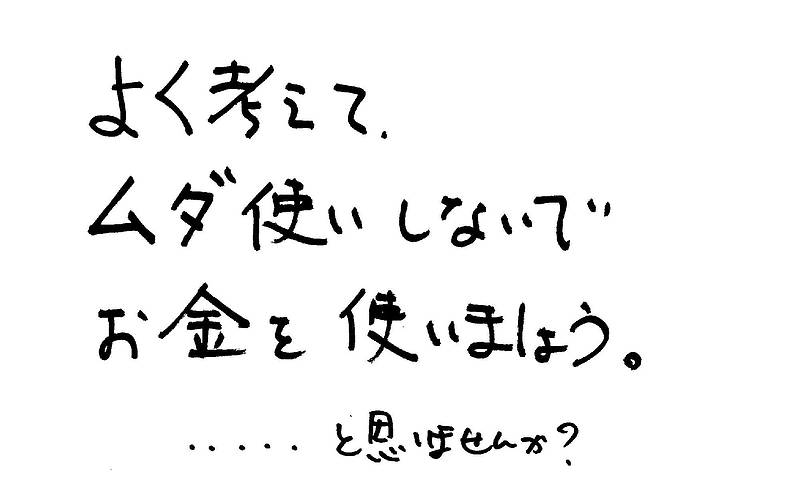 よく考えて.
ムダ使いしないで
お金を使いましょう。
.....と思いませんか?